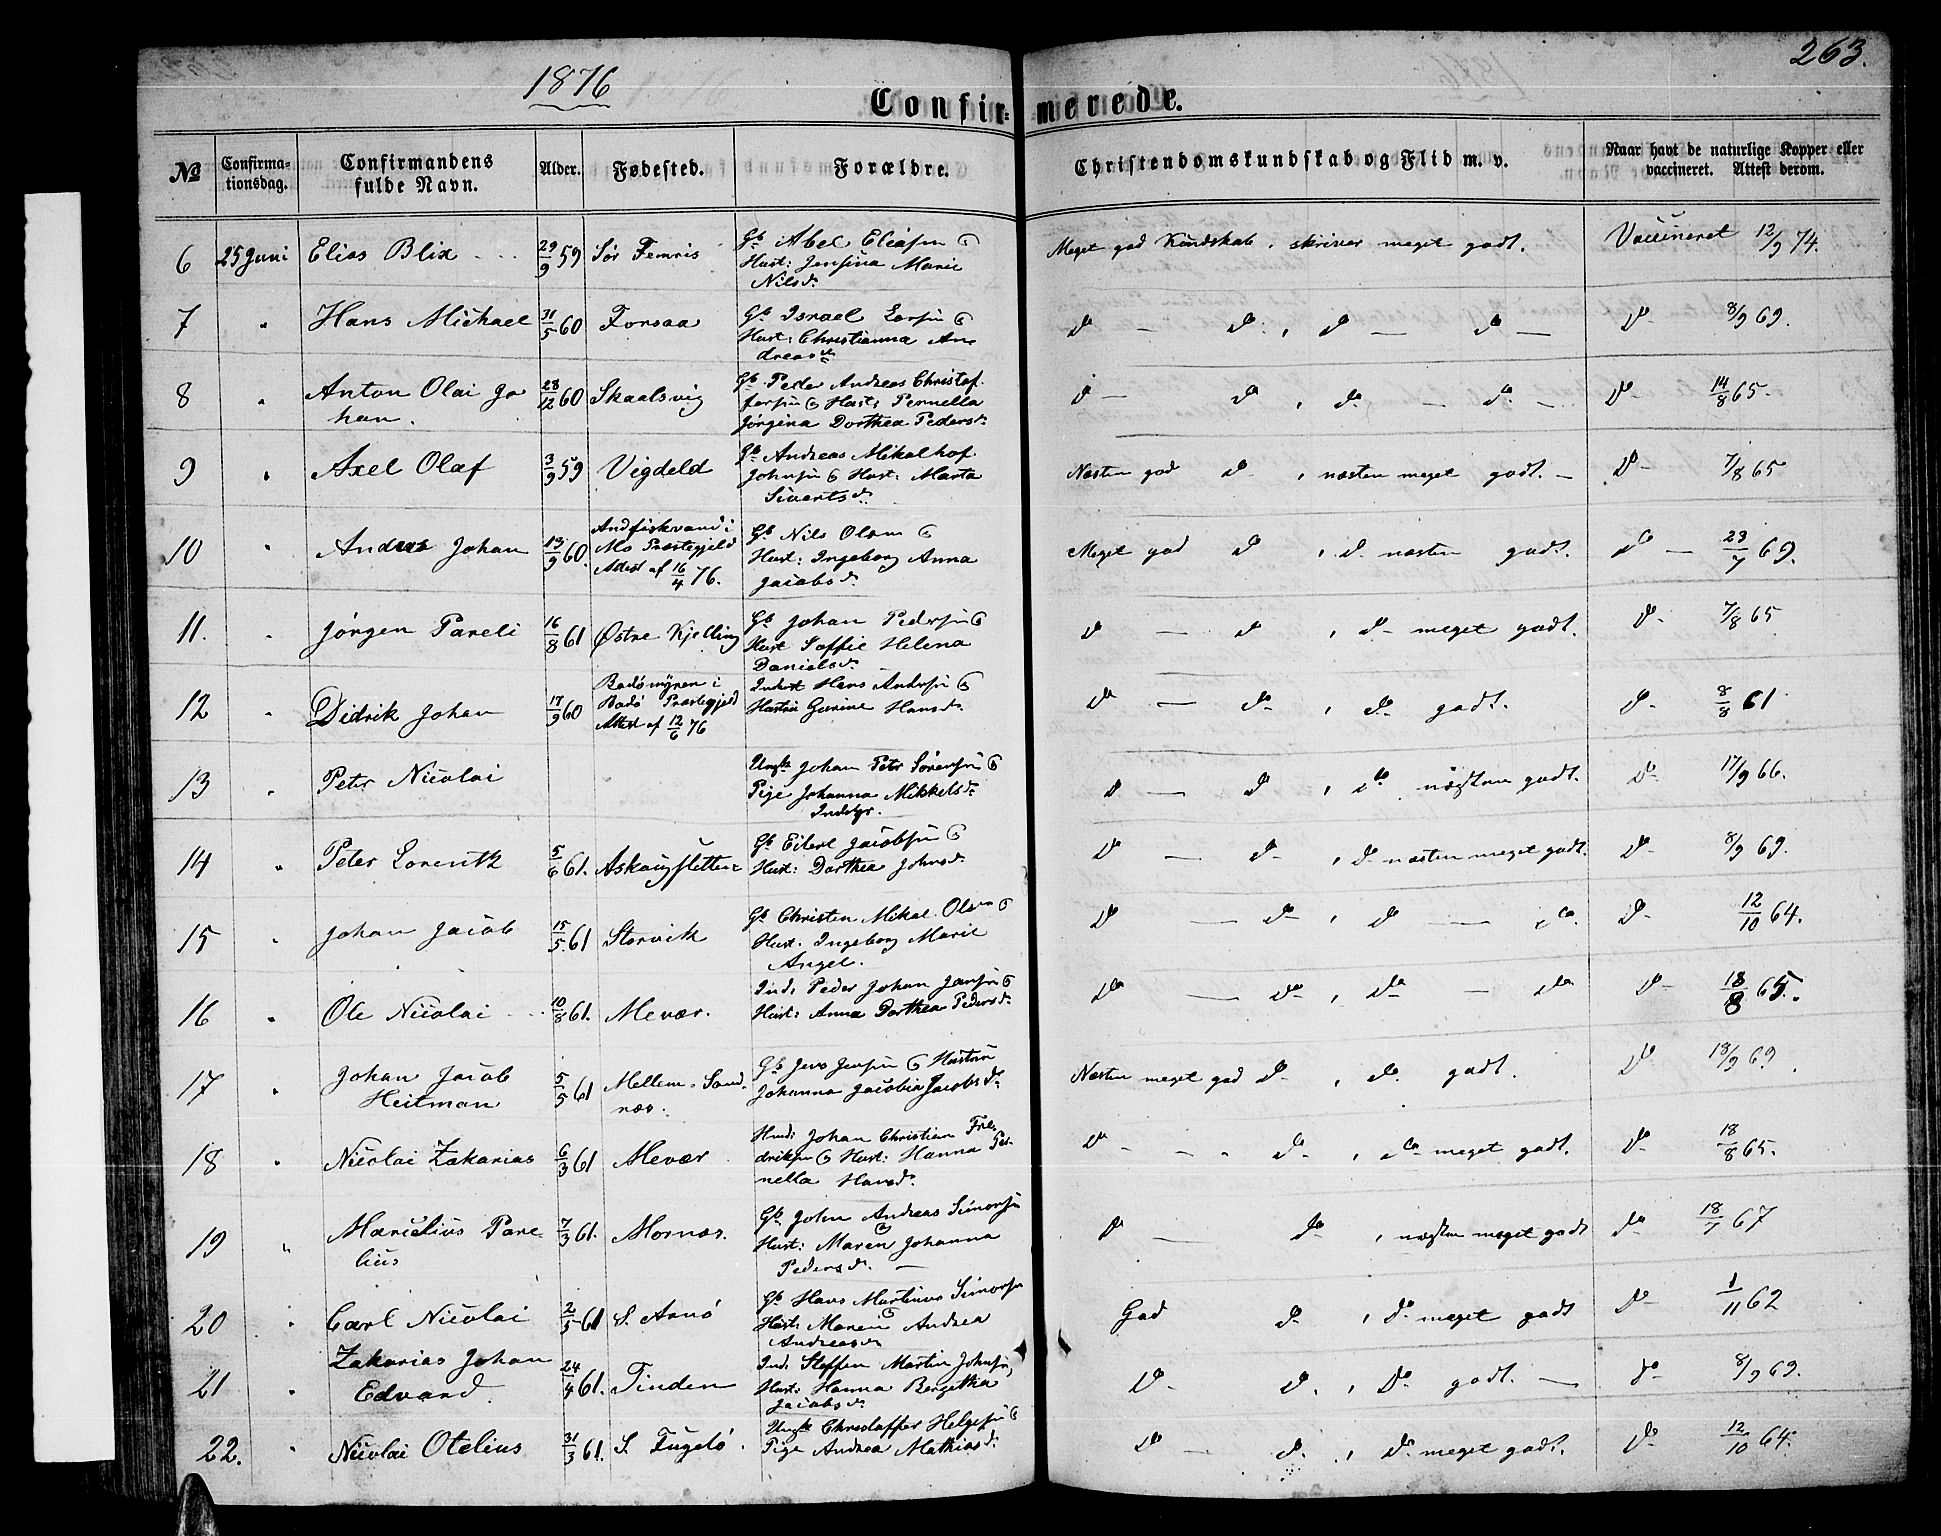 263.
1876
Confirmerede.
No Confirmationsdag. Confirmandens fulde Navn. Alder. Fødested. Forældre. Christendomskundskab og Flid m. v. Naar havt de naturlige Kopper eller vaccineret. Attest derom.
6 25 Juni Elias Blix 29/9 59 Sør Femris Gb Abel Eliass. &
Hust: Jensina Marie
Nilsd. Meget god Kundskab, skriver meget godt. Vaccineret 12/9 74.
7 " Hans Michael 31/5 60 Forsaa Gb Israel Larss. &
Hust: Christianna An
dreasd. Do — Do, Do — Do — Do 8/9 69.
8 " Anton Olai Jo
han. 28/12 60 Skaalsvig Gb Peder Andreas Christof
fers. & Hust: Pernella
Jørgina Dorthea Pedersd. Do — Do, Do — Do — Do 14/8 65.
9 " Axel Olaf 3/9 59 Vigdeld Gb Andreas Mikal
Johns. & Hust: Marta
Sivertsd. Næsten god Do, næsten meget godt. — Do 7/8 65
10 " Andreas Johan 13/9 60. Andfiskvand i
Mo Præstegjeld
Attest af 16/4 76. Gb Nils Olsen &
Hust: Ingeborg Anna
Jacobsd. Meget god Do, Do næsten godt. Do — 23/7 69.
11. " Jørgen Pareli 16/8 61 Østre Kjelling Gb Johan Peders. &
Hust Soffie Helena
Danielsd. Do — Do, Do meget godt. Do 7/8 65
12 " Didrik Johan 17/9 60 Bodømyren i
Bodø Præstegjeld
Attest af 12/6 76 Inderst Hans Anders. &
Hustru Gurine Hansd. Do — Do, Do godt. Do 8/8 61
13 " Peter Nicolai Ungk. Johan Petr Sørens. &
Pige Johanna Mikkelsd.
Do — Do, Do næsten godt. Do 17/9 66.
14 " Peter Lorentz 5/6 61. Askaugsletten Gb Eilert Jacobs. &
Hust: Dorthea Johnsd. Do — Do, Do næsten meget godt. Do 8/9 69.
15 " Johan Jacob 15/5 61 Storvik Gb Christen Mikal Olsen &
Hust. Ingeborg Marie
Angel. Do — Do, Do — Do. Do 12/10 64.
16 " Ole Nicolai 10/8 61. Mevær. Ind: Peder Johan Jans. &
Hust: Anna Dorthea Pedersd. Do — Do, Do — Do Do 18/8 65.
17 " Johan Jacob
Heitman 5/5 61 Mellem-Sand
næs. Gb Jens Jens. & Hustru
Johanna Jacobia Jacobsd. Næsten meget god Do, Do godt. Do 18/9 69
18 " Nicolai Zakarias 6/3 61 Mevær Hmd: Johan Christian Fre
driks. & Hust: Hanna Per
nella Hansd. Do - - Do, Do meget godt. Do 18/8 65.
19 " Marcelius Pare
lius 7/3 61. Mornæs. Gb John Andreas Simons.
& Hust: Maren Johanna
Pedersd. Do — Do, næsten meget godt Do 18/7 67
20 " Carl Nicolai 2/5 61 S. Arnø Gb Hans Martinus Simons.
& Hust: Maren Andrea
Andreasd. God Do, Do meget godt Do 1/11 62
21 " Zakarias Johan
Edvard. 24/4 61. Tinden Ind: Steffen Martin Johns.
Hust: Hanna Bergetha
Jacobsd. Do Do, Do godt. — Do 8/9 69.
22. " Nicolai Otelius 31/3 61. S. Fugelø. Ungk. Christoffer Helges. &
Pige Andrea Mathiasd. Do — Do, Do meget godt. Do 12/10 64.